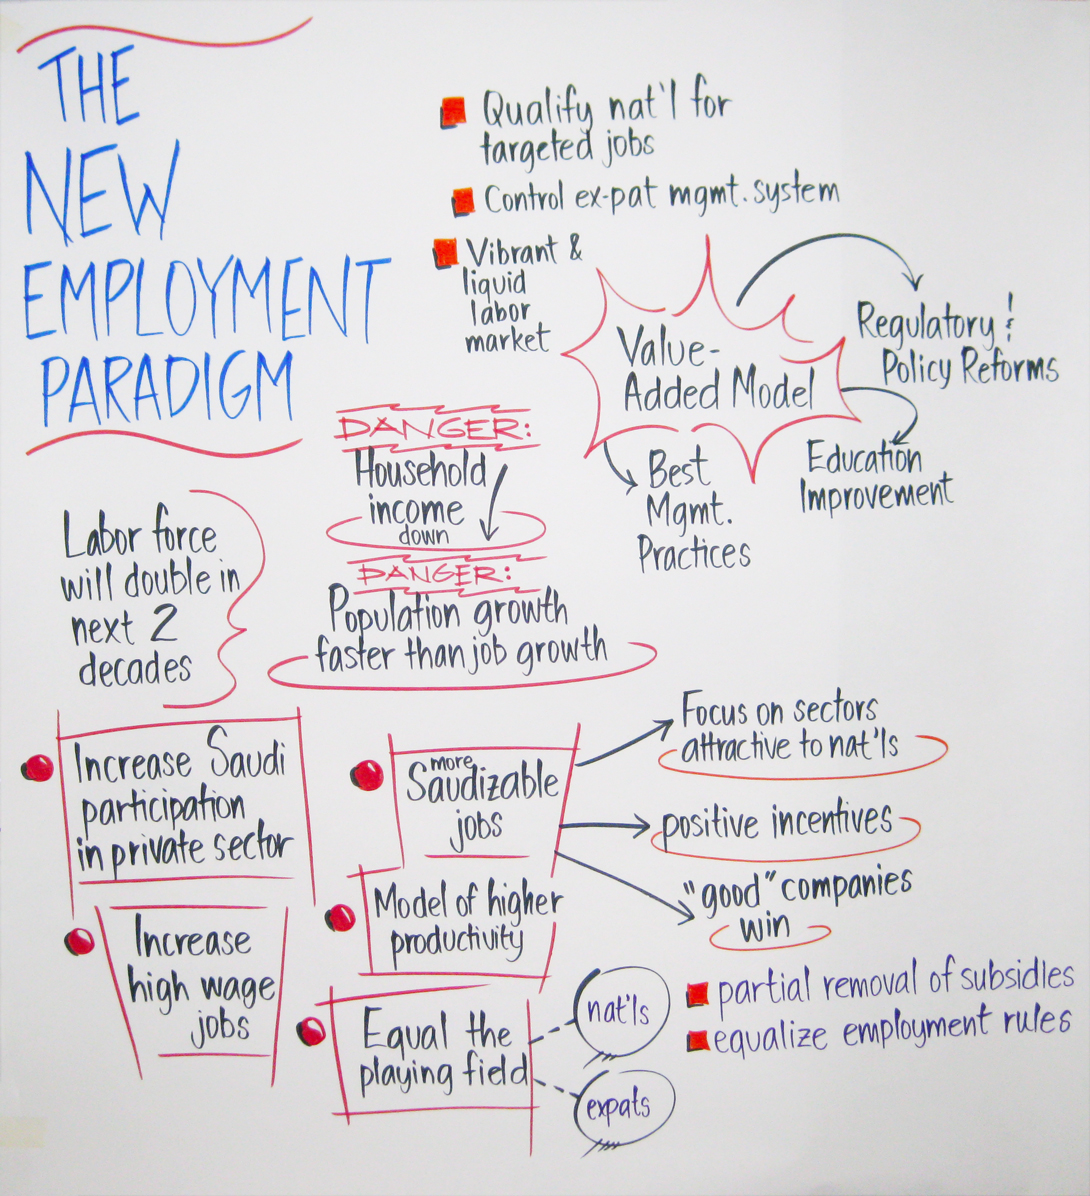 THE
NEW
EMPLOYMENT
PARADIGM
Qualify nat'l for
targeted jobs
Control ex-pat mgmt. system
Vibrant &
liquid
labor
market
Value-
Added Model
Regulatory &
Policy Reforms
Education
Improvement
Best
Mgmt.
Practices
DANGER:
Household
income
down
DANGER:
Population growth
faster than job growth
Labor force
will double in
next 2
decades
Increase Saudi
participation
in private sector
Increase
high wage
jobs
more
Saudizable
jobs
Focus on sectors
attractive to nat'ls
positive incentives
"good" companies
win
Model of higher
productivity
Equal the
playing field
nat'ls
expats
partial removal of subsidies
equalize employment rules